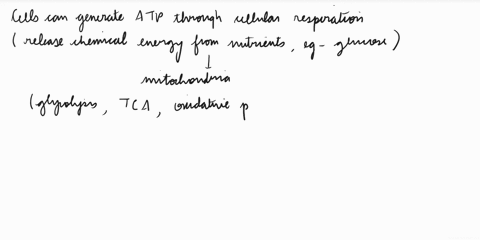 Cells can generate ATP through cellular respiration
( release chemical energy from nutrients, eg - glucose )
↓
mitochondria
( glycolysis, TCA, oxidative p